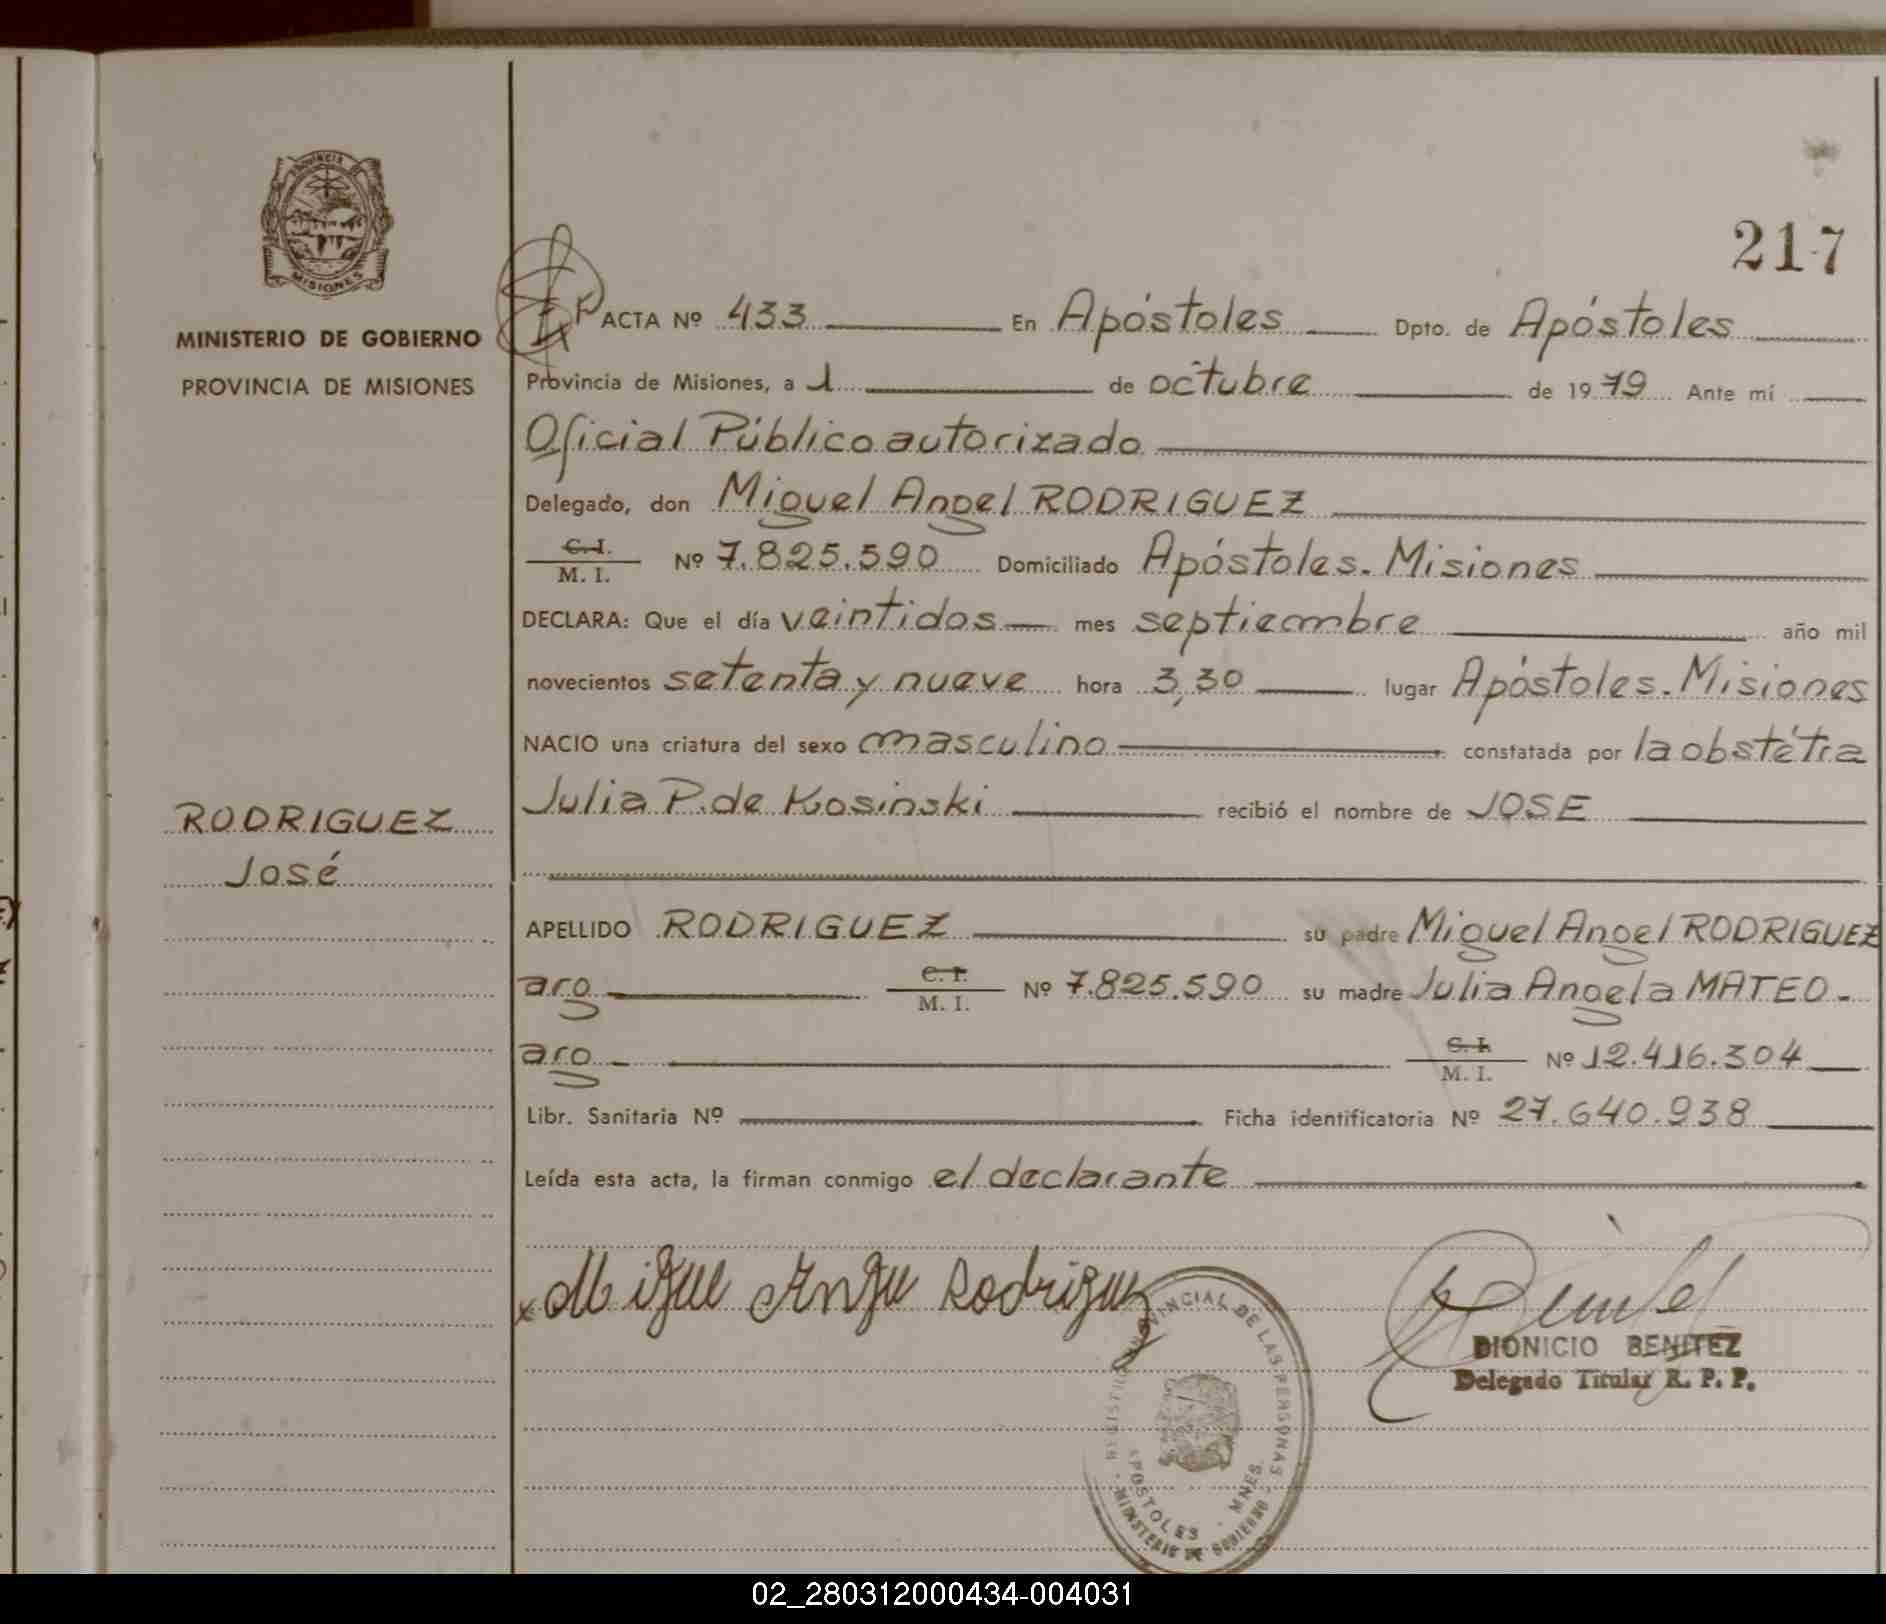 PROVINCIA
MISIONES
MINISTERIO DE GOBIERNO
PROVINCIA DE MISIONES
217
ACTA Nº 433 En Apóstoles Dpto. de Apóstoles
Provincia de Misiones, a 1 de octubre de 1979 Ante mí
Oficial Público autorizado
Delegado, don Miguel Angel RODRIGUEZ
C. I.
M. I. Nº 7.825.590 Domiciliado Apóstoles. Misiones
DECLARA: Que el día veintidos mes septiembre año mil
novecientos setenta y nueve hora 3,30 lugar Apóstoles. Misiones
NACIO una criatura del sexo masculino constatada por la obstétra
Julia P. de Kosinski recibió el nombre de JOSE
RODRIGUEZ
José
APELLIDO RODRIGUEZ su padre Miguel Angel RODRIGUEZ
arg C. I.
M. I. Nº 7.825.590 su madre Julia Angela MATEO.
arg C. I.
M. I. Nº 12.416.304
Libr. Sanitaria Nº Ficha identificatoria Nº 27.640.938
Leída esta acta, la firman conmigo el declarante
x Miguel Angel Rodriguez
DIONICIO BENITEZ
Delegado Titular R. P. P.
REGISTRO PROVINCIAL DE LAS PERSONAS
APOSTOLES - MNES.
MINISTERIO DE GOBIERNO
02_280312000434-004031